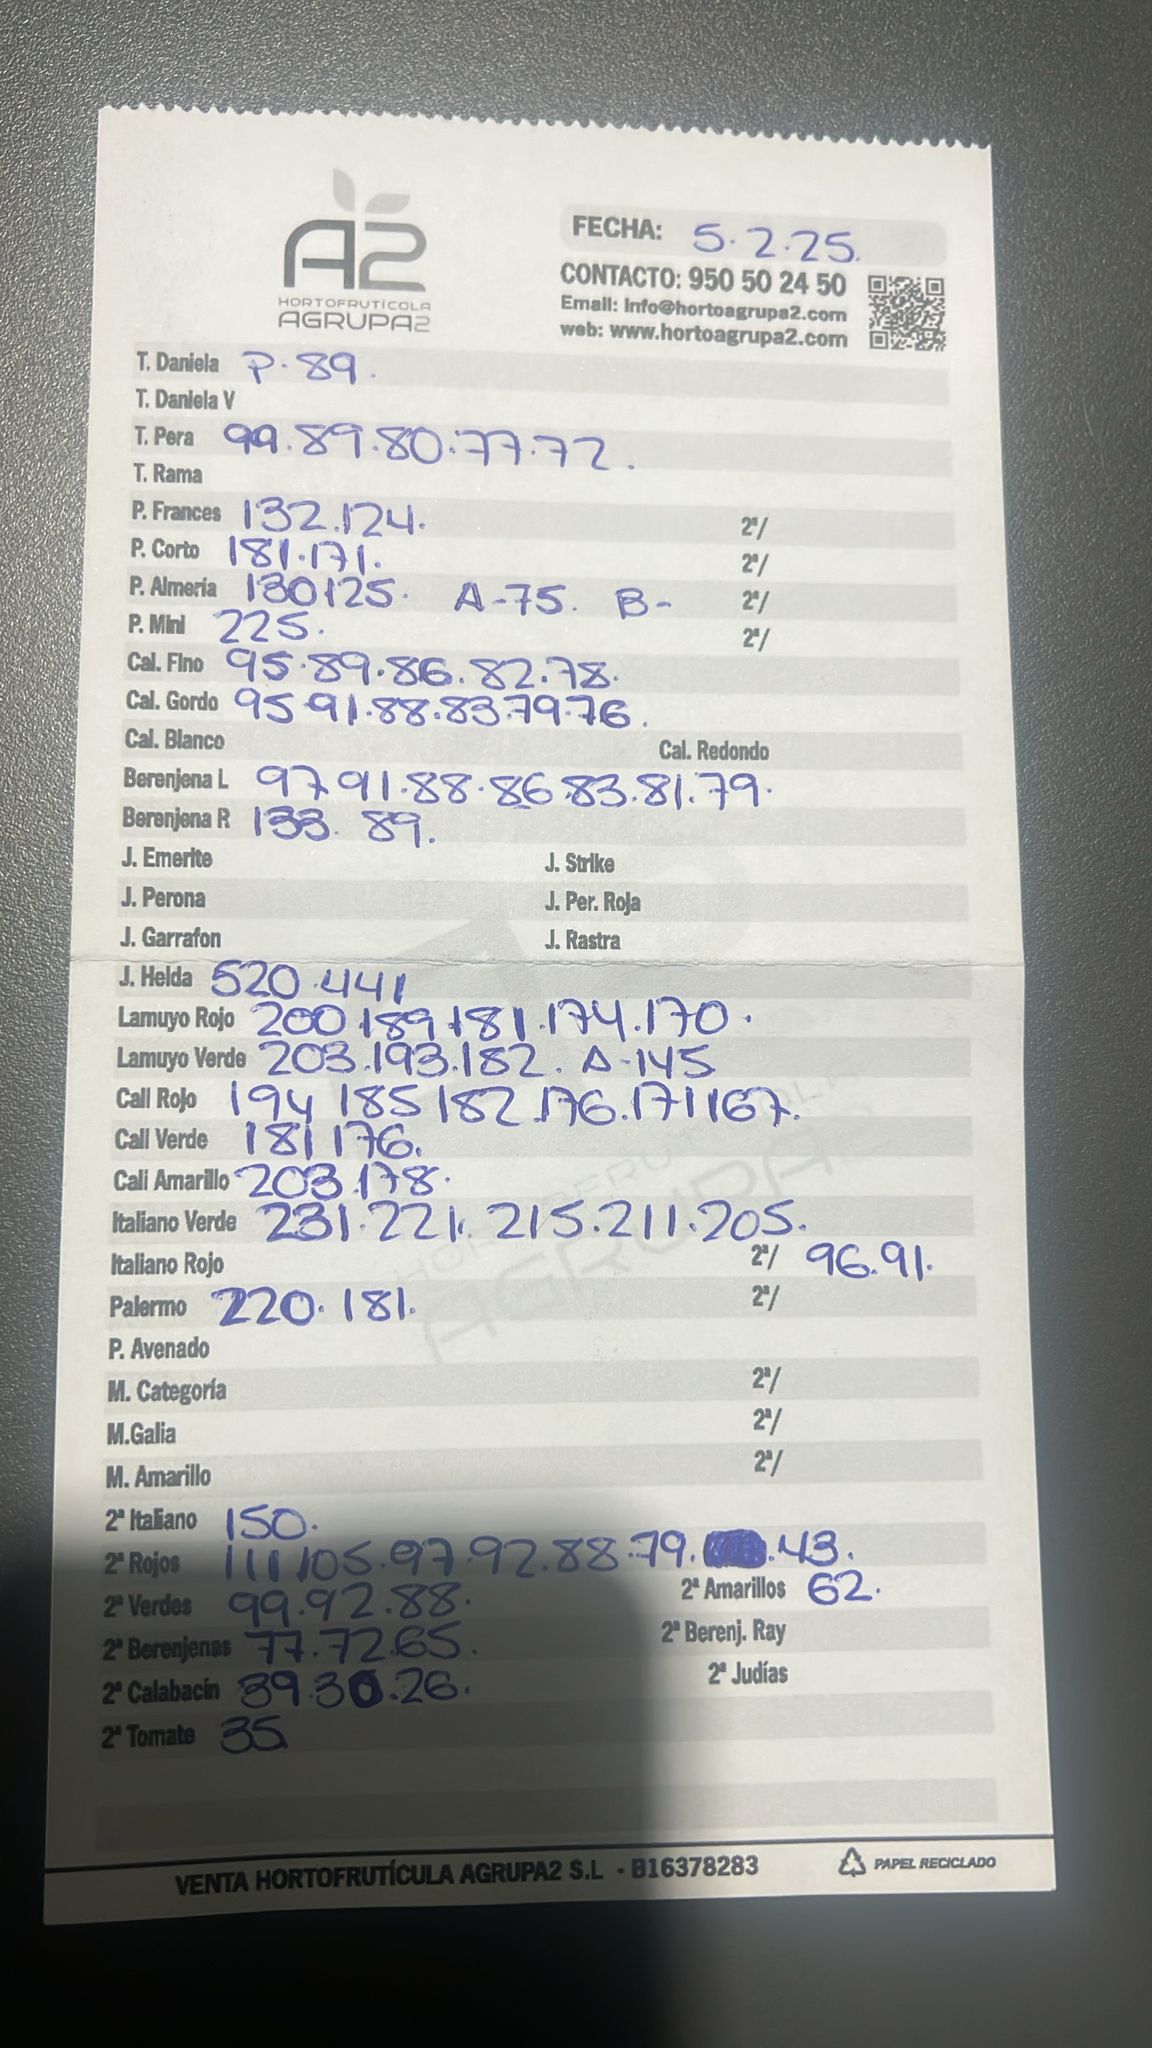 A2
HORTOFRUTÍCOLA
AGRUPA2
FECHA: 5.2.25.
CONTACTO: 950 50 24 50
Email: info@hortoagrupa2.com
web: www.hortoagrupa2.com
T. Daniela P.89.
T. Daniela V
T. Pera 99.89.80.77.72.
T. Rama
P. Frances 132.124. 2ª/
P. Corto 181.171. 2ª/
P. Almería 130125. A-75. B- 2ª/
P. Mini 225. 2ª/
Cal. Fino 95.89.86.82.78.
Cal. Gordo 95 91.88.83.79.76.
Cal. Blanco Cal. Redondo
Berenjena L 97 91.88.86 83.81.79.
Berenjena R 133. 89.
J. Emerite J. Strike
J. Perona J. Per. Roja
J. Garrafon J. Rastra
J. Helda 520.441
Lamuyo Rojo 200.189.181.174.170.
Lamuyo Verde 203.193.182. A-145
Cali Rojo 194 185 182.176.171167.
Cali Verde 181 176.
Cali Amarillo 203.178.
Italiano Verde 231.221. 215.211.205.
Italiano Rojo 2ª/ 96.91.
Palermo 220.181. 2ª/
P. Avenado
M. Categoría 2ª/
M.Galia 2ª/
M. Amarillo 2ª/
2ª Italiano 150.
2ª Rojos 111.105.97.92.88.79. .43.
2ª Verdes 99.92.88. 2ª Amarillos 62.
2ª Berenjenas 77.72.65. 2ª Berenj. Ray
2ª Calabacín 39.30.26. 2ª Judías
2ª Tomate 35.
VENTA HORTOFRUTÍCULA AGRUPA2 S.L - B16378283 PAPEL RECICLADO